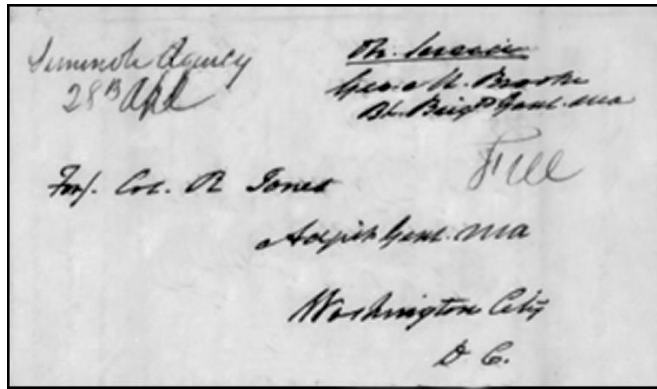 Seminole Agency
28th Apl
On Service
Geo. M. Brooke
Bt. Brigd Genl. USA
Free
For/. Col. R Jones
Adjut Genl. USA
Washington City
D. C.